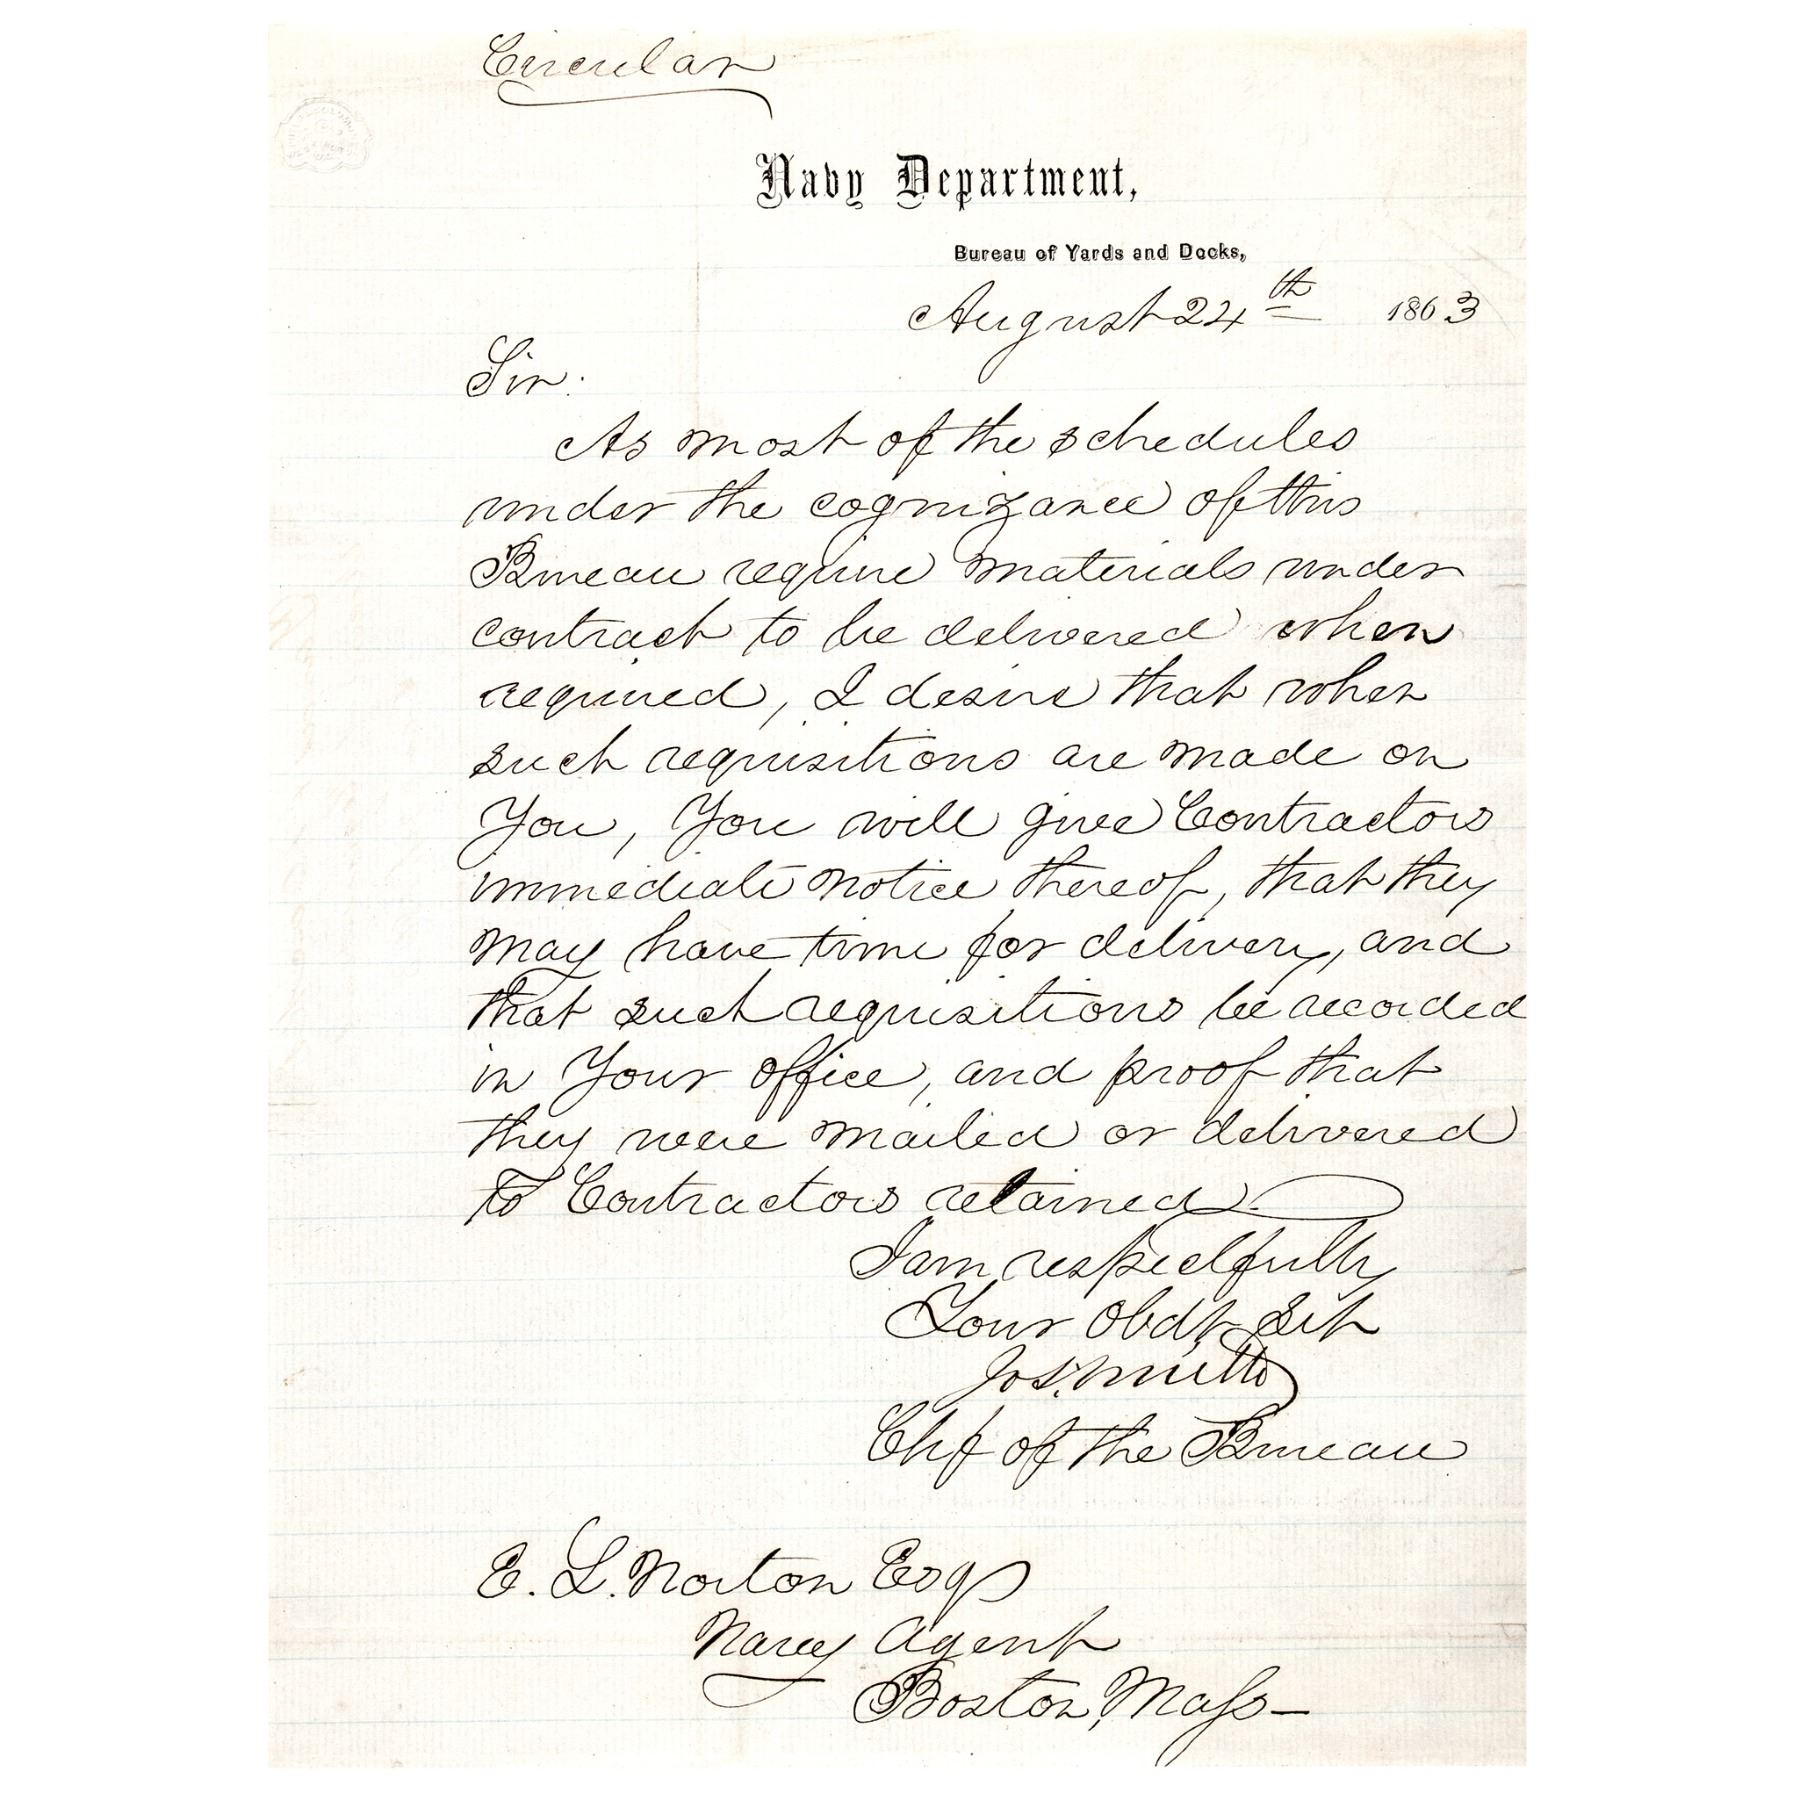 Circular
Navy Department,
Bureau of Yards and Docks,
August 24th 1863
Sir:
As most of the schedules
under the cognizance of this
Bureau require materials under
contract to be delivered when
required, I desire that when
such requisitions are made on
You, You will give Contractors
immediate notice thereof, that they
may have time for delivery, and
that such requisitions be recorded
in Your office, and proof that
they were mailed or delivered
to Contractors retained.
I am respectfully
Your Obdt Svt
Jos. Smith
Chf of the Bureau
E. L. Norton Esq
Navy Agent
Boston, Mass—